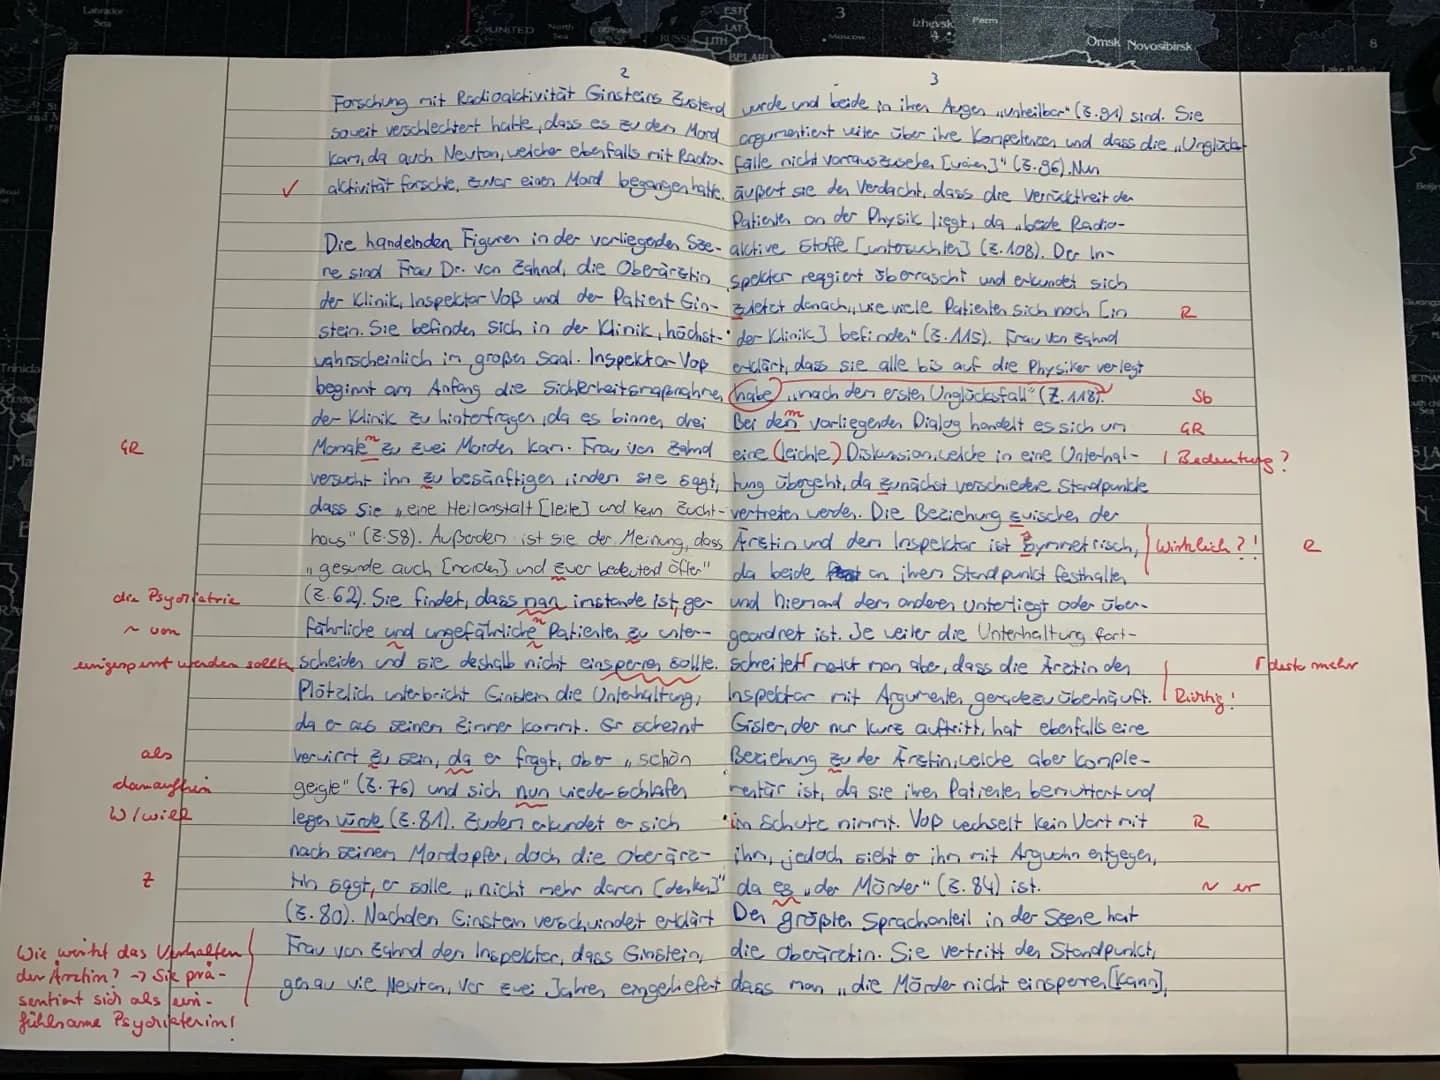 2
Forschung mit Radioaktivität Einsteins Zustand
soweit verschlechtert hatte, dass es zu dem Mord
kam, da auch Newton, welcher ebenfalls mit Radio-
✓ aktivität forschte, zuvor einen Mord begangen hatte.
Die handelnden Figuren in der vorliegenden Sze-
ne sind Frau Dr. von Zahnd, die Oberärztin
der Klinik, Inspektor Voß und der Patient Ein-
stein. Sie befinden sich in der Klinik, höchst-
wahrscheinlich im großen Saal. Inspektor Voß
beginnt am Anfang die Sicherheitsmaßnahmen
der Klinik zu hinterfragen, da es binnen drei
GR Monate n zu zwei Morden kam. Frau von Zahnd
versucht ihn zu besänftigen, indem sie sagt,
dass Sie „eine Heilanstalt [leite] und kein Zucht-
haus" (Z.58). Außerdem ist sie der Meinung, dass
„gesunde auch [morden] und zwar bedeutend öfter"
die Psychiatrie (Z.62). Sie findet, dass man imstande ist, ge-
~ von fährliche und ungefährliche n Patienten zu unter-
eingesperrt werden sollte scheiden und sie deshalb nicht einsperren sollte.
Plötzlich unterbricht Einstein die Unterhaltung,
da er aus seinem Zimmer kommt. Er scheint
als verwirrt zu sein, da er fragt, ober „schön
daraufhin geigte" (Z.76) und sich nun wieder schlafen
W/will legen würde (Z.81). Zudem erkundet er sich
nach seinem Mordopfer, doch die Oberärz-
Z tin sagt, er solle „nicht mehr daran [denken]"
(Z.80). Nachdem Einstein verschwindet erklärt
Wie wirkt das Verhalten Frau von Zahnd dem Inspektor, dass Einstein,
der Ärztin? → Sie prä- genau wie Newton, vor zwei Jahren eingeliefert
sentiert sich als ein-
fühlsame Psychiaterin!
3
wurde und beide in ihren Augen „unheilbar" (Z.91) sind. Sie
argumentiert weiter über ihre Kompetenzen und dass die „Unglücks-
fälle nicht vorrauszusehen [waren]" (Z.96). Nun
äußert sie den Verdacht, dass die Verrücktheit der
Patienten an der Physik liegt, da „beide Radio-
aktive Stoffe [untersuchten] (Z.108). Der In-
spektor reagiert überrascht und erkundet sich
zuletzt danach, „wie viele Patienten sich noch [in R
der Klinik] befinden" (Z.115). Frau von Zahnd
erklärt, dass sie alle bis auf die Physiker verlegt
habe „nach dem ersten Unglücksfall" (Z.118). Sb
Bei dem m vorliegenden Dialog handelt es sich um GR
eine (leichte) Diskussion, welche in eine Unterhal- Bedeutung?
tung übergeht, da zunächst verschiedene Standpunkte
vertreten werden. Die Beziehung zwischen der
Ärztin und dem Inspektor ist symmetrisch, Wirklich?! R
da beide an ihrem Standpunkt festhalten
und niemand dem anderen unterliegt oder über-
geordnet ist. Je weiter die Unterhaltung fort-
schreitet merkt man aber, dass die Ärztin den desto mehr
Inspektor mit Argumenten geradezu überhäuft. Richtig!
Eistein, der nur kurz auftritt, hat ebenfalls eine
Beziehung zu der Ärztin, welche aber komple-
mentär ist, da sie ihren Patienten bemuttert und
im Schutz nimmt. Voß wechselt kein Wort mit R
ihm, jedoch sieht er ihm mit Argwohn entgegen,
da es „der Mörder" (Z.84) ist. ~ er
Den größten Sprachanteil in der Szene hat
die Oberärztin. Sie vertritt den Standpunkt,
dass man „die Mörder nicht einsperren [kann],